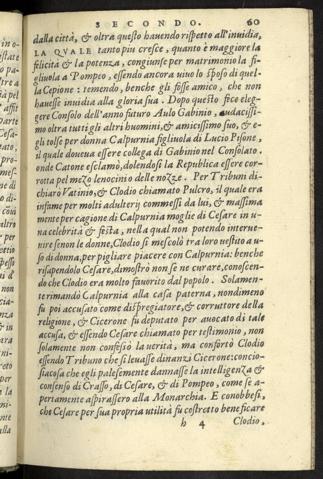 SECONDO. 60
dalla città, & oltra questo havendo rispetto all'invidia,
LA QVALE tanto piu cresce, quanto è maggiore la
felicità & la potenza, congiunse per matrimonio la fi-
gliuola a Pompeo, essendo ancora vivo lo sposo di quel-
la Cepione: temendo, benche gli fosse amico, che non
havesse invidia alla gloria sua. Dopo questo fice eleg-
gere Consolo dell'anno futuro Aulo Gabinio, audacissi-
mo oltra tutti gli altri huomini, & amicissimo suo, & e-
gli tolse per donna Calpurnia figliuola di Lucio Pisone,
il quale doueua essere collega di Gabinio nel Consolato,
onde Catone esclamò, dolendosi la Republica essere cor-
rotta pel mezo lenocinio delle nozze. Per Tribuni di-
chiarò Vatinio, & Clodio chiamato Pulcro, il quale era
infame per molti adulterij commessi da lui, & massima
mente per cagione di Calpurnia moglie di Cesare in u-
na celebrità & festa, nella qual non potendo interue-
nire se non le donne, Clodio si mescolò tra loro uestito a u-
so di donna, per pigliare piacere con Calpurnia: benche
risapendolo Cesare, dimostrò non se ne curare, conoscen-
do che Clodio era molto fauorito dal popolo. Solamen-
te rimandò Calpurnia alla casa paterna, nondimeno
fu poi accusato come dispregiatore, & corruttore della
religione, & Cicerone fu deputato per auocato di tale
accusa, & essendo Cesare chiamato per testimonio, non
solamente non confessò la uerità, ma confortò Clodio
essendo Tribuno che si leuasse dinanzi Cicerone: concio-
siacosa che egli palesemente dannasse la intelligenza &
consenso di Crasso, di Cesare, & di Pompeo, come se a-
pertamente aspirassero alla Monarchia. E conobbesi,
che Cesare per sua propria utilità fu costretto beneficare
h 4 Clodio,